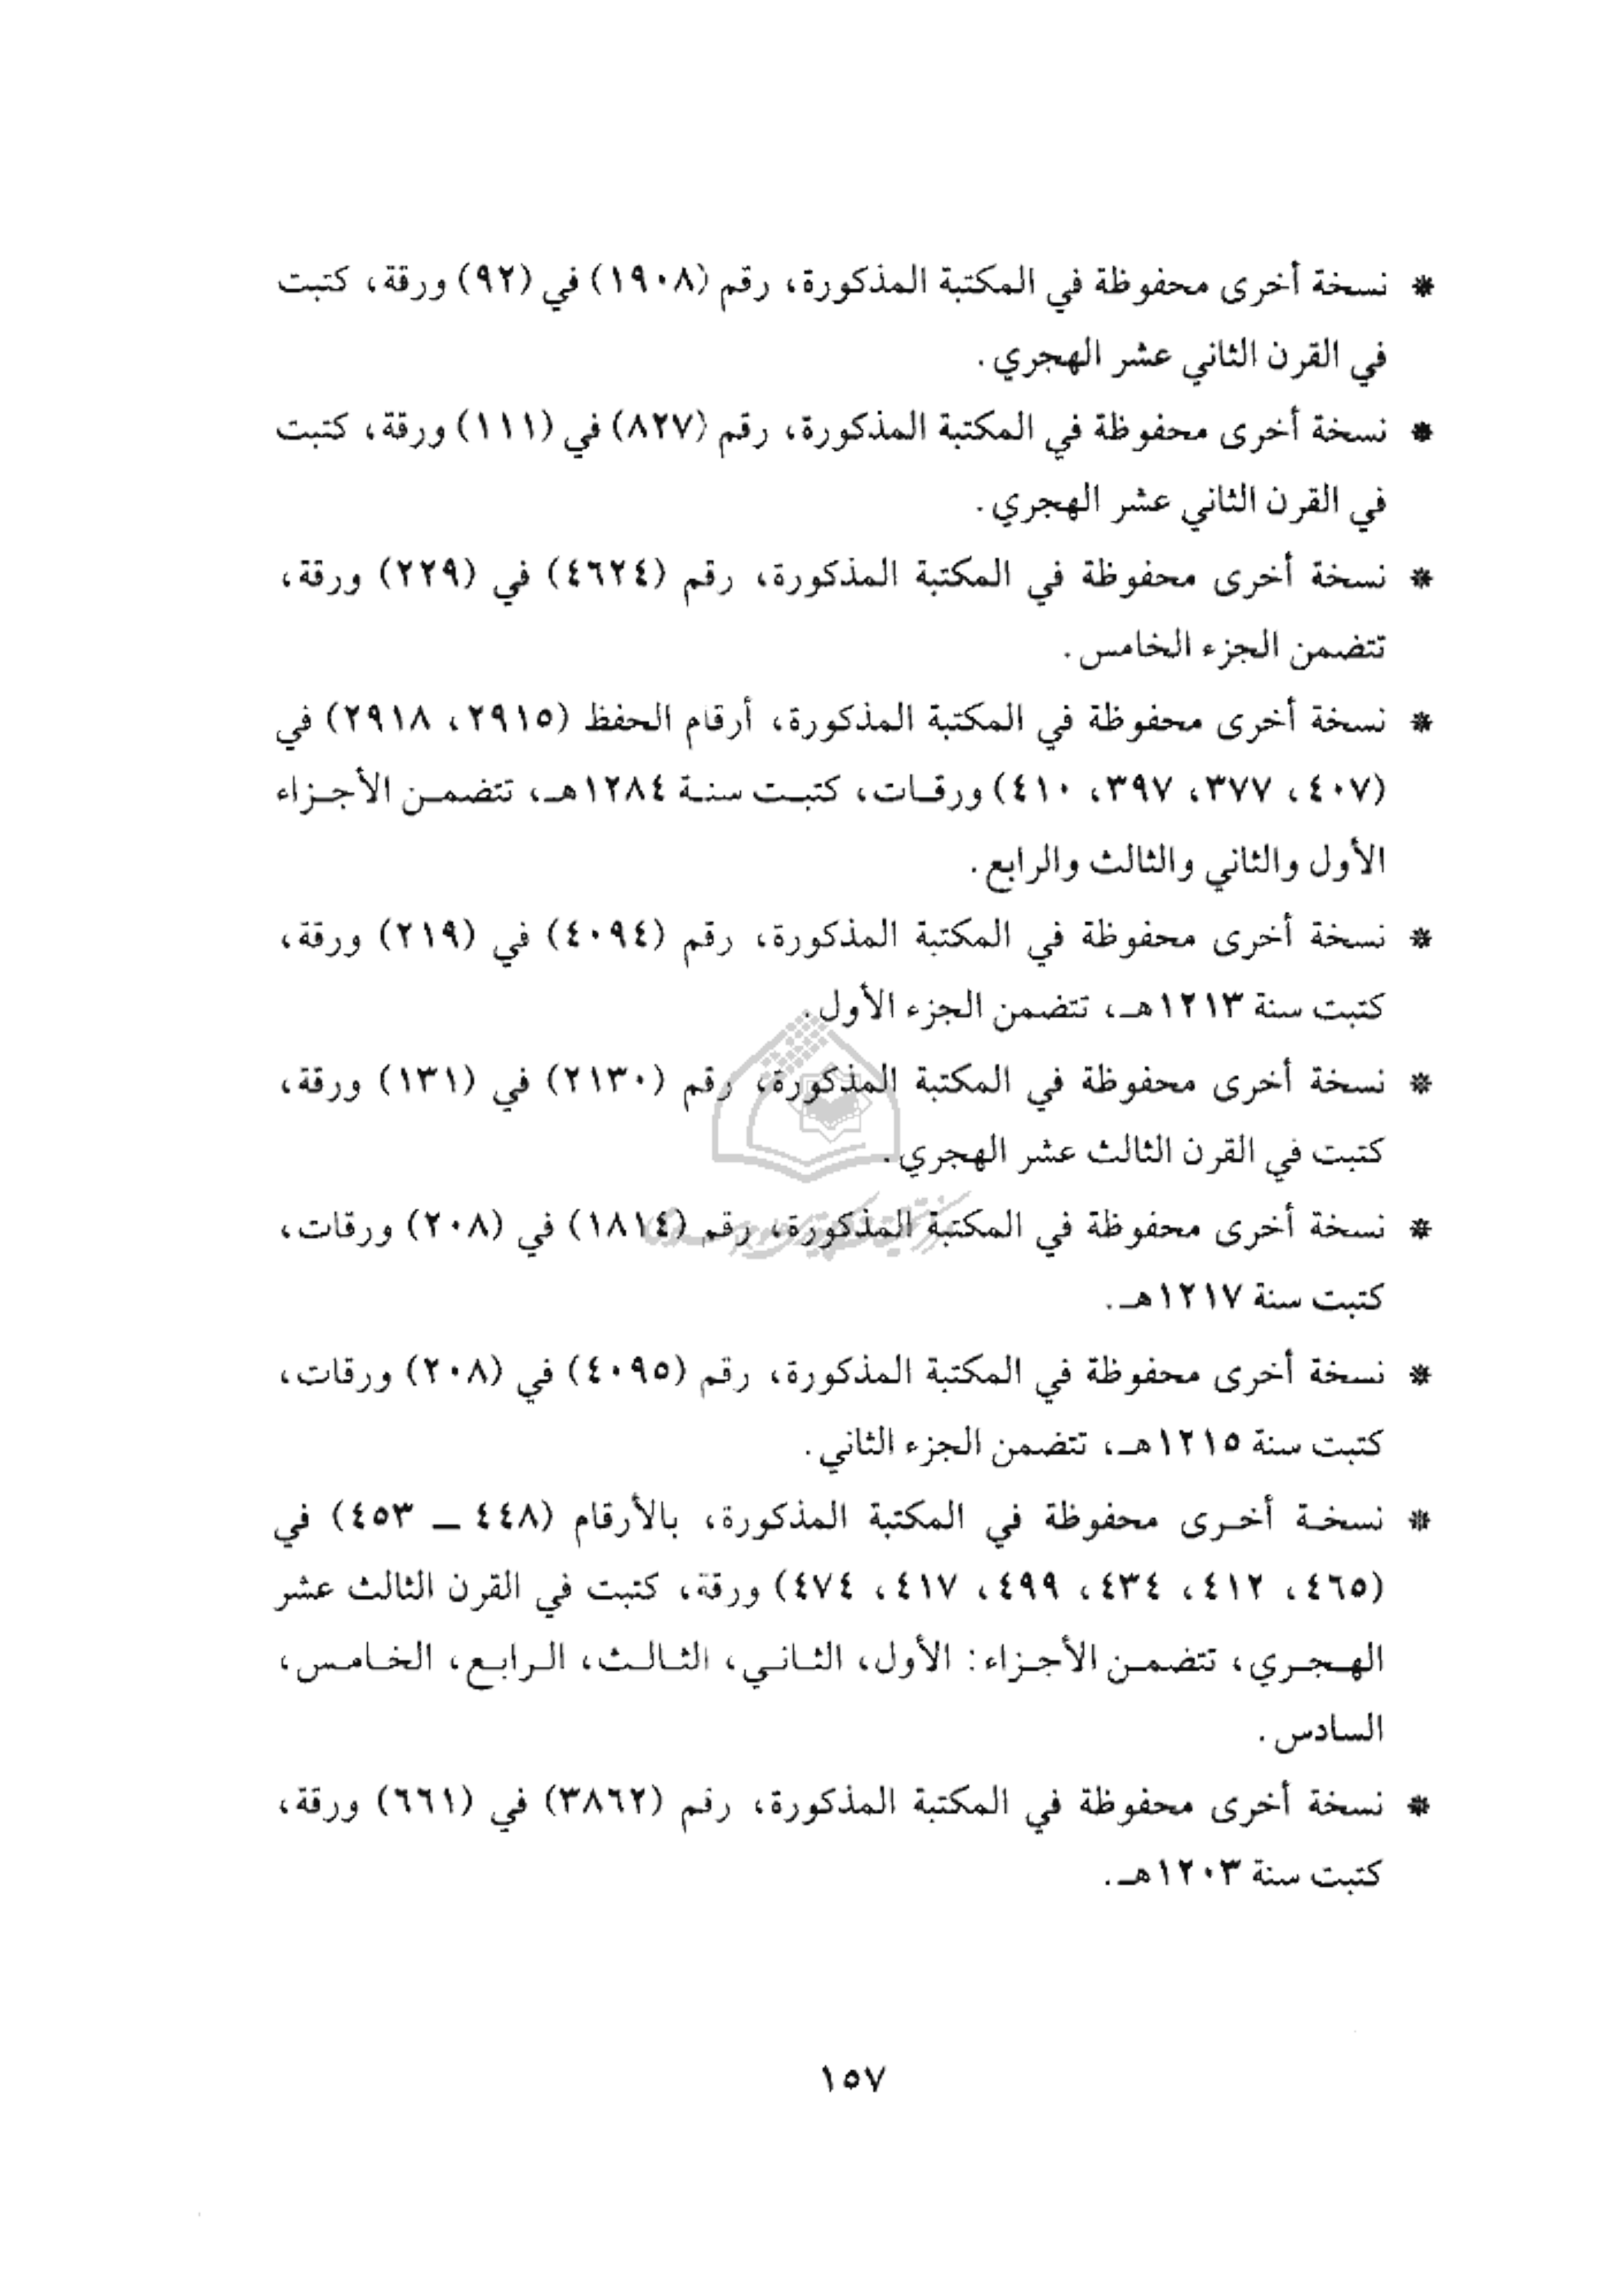 * نسخة أخرى محفوظة في المكتبة المذكورة، رقم (١٩٠٨) في (٩٢) ورقة، كتبت
في القرن الثاني عشر الهجري.
* نسخة أخرى محفوظة في المكتبة المذكورة، رقم (٨٢٧) في (١١١) ورقة، كتبت
في القرن الثاني عشر الهجري.
* نسخة أخرى محفوظة في المكتبة المذكورة، رقم (٤٦٢٤) في (٢٢٩) ورقة،
تتضمن الجزء الخامس.
* نسخة أخرى محفوظة في المكتبة المذكورة، أرقام الحفظ (٢٩١٥، ٢٩١٨) في
(٤٠٧، ٣٧٧، ٣٩٧، ٤١٠) ورقـات، كتبـت سنـة ١٢٨٤هـ، تتضمـن الأجـزاء
الأول والثاني والثالث والرابع.
* نسخة أخرى محفوظة في المكتبة المذكورة، رقم (٤٠٩٤) في (٢١٩) ورقة،
كتبت سنة ١٢١٣هـ، تتضمن الجزء الأول.
* نسخة أخرى محفوظة في المكتبة المذكورة، رقم (٢١٣٠) في (١٣١) ورقة،
كتبت في القرن الثالث عشر الهجري.
* نسخة أخرى محفوظة في المكتبة المذكورة، رقم (١٨١٤) في (٢٠٨) ورقات،
كتبت سنة ١٢١٧هـ.
* نسخة أخرى محفوظة في المكتبة المذكورة، رقم (٤٠٩٥) في (٢٠٨) ورقات،
كتبت سنة ١٢١٥هـ، تتضمن الجزء الثاني.
* نسخـة أخـرى محفوظة في المكتبة المذكورة، بالأرقام (٤٤٨ ــ ٤٥٣) في
(٤٦٥، ٤١٢، ٤٣٤، ٤٩٩، ٤١٧، ٤٧٤) ورقة، كتبت في القرن الثالث عشر
الهـجـري، تتضمـن الأجـزاء: الأول، الثـانـي، الثـالـث، الـرابـع، الخـامـس،
السادس.
* نسخة أخرى محفوظة في المكتبة المذكورة، رقم (٣٨٦٢) في (٦٦١) ورقة،
كتبت سنة ١٢٠٣هـ.
١٥٧